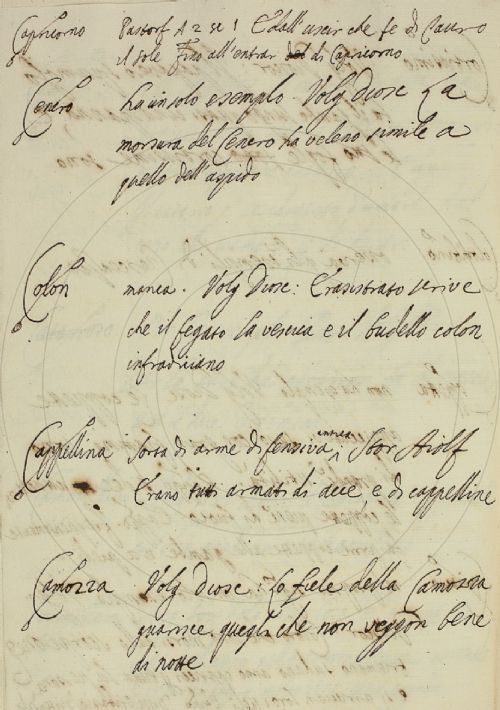 Capricorno Pastorf A 2 sc 1 E dall'uscir che fe di Tauro
il sole fino all'entrar del di Capricorno
Cenero ha un solo esempio. Volg Diosc La
morsura del Cenero ha veleno simile a
quello dell'aspido
Colon manca. Volg Diosc: Erasistrato scrive
che il fegato la vescica e il budello colon
infradiciano
Cappellina sorta di arme difensiva antica Stor Aiolf
Erano tutti armati di acce e di cappelline
Camozza Volg Diosc: lo fiele della Camozza
guarisce quegli che non veggon bene
di notte